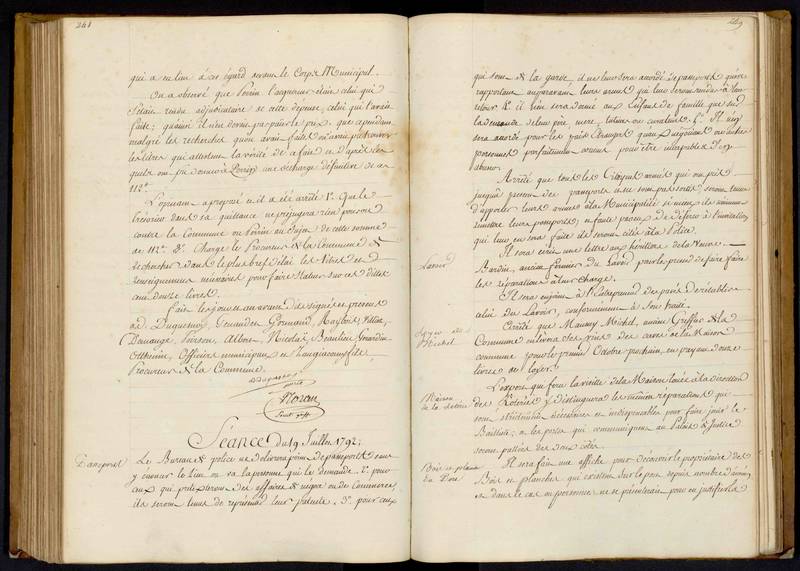 241
qui a eu lieu à cet égard devant le Corps Municipal.
On a observé que Poirin étoit celui qui
s'étoit rendu adjudicataire de cette dépense, celui qui l'avoit
faite; qu'ainsi il n'en devoit pas le prix, que cependant
malgré les recherches qu'on avoit faites on n'avoit pu trouver
les titres qui attestent la vérité de ce fait et d'après les
quels on put donner à Poirin une décharge définitive de ces
112#.
L'opinant a proposé et il a été arrêté 1° Que le
Trésorier dans sa quittance ne préjugera rien pour ou
contre la Commune ou Poirin au sujet de cette somme
de 112#. 2° Charge le Procureur de la Commune de
rechercher dans le plus bref délai les titres et
renseignemens nécessaires pour faire statuer sur ces dittes
cent douze livres.
Fait les jour et an avant dits signés et présents
Demange, Poirson, Nicolas, Beaulieu, Girardin
Officiers municipaux et
Procureur de la Commune.
Séance du 19 Juillet 1792;
Passeport
Le Bureau de police ne délivrera point de passeports sans
y énoncer le lieu où va la personne qui le demande. 2° pour
ceux qui prétexteront des affaires de négoce ou de Commerce,
ils seront tenus de représenter leur patente. 3° pour ceux
249
qui sont de la garde, il ne leur sera accordé de passeports qu'en
rapportant auparavant leurs armes qui leur seront rendues à leur
retour. 4° il n'en sera donné aux Enfans de famille que sur
la demande de leur père, mere, tuteur ou curateur. 5° Il n'en
sera accordé pour les pays Etrangers qu'aux négocians ou autres
personnes parfaitement connues pour être incapables d'en
abuser.
Arrêté que tous les Citoyens armés qui ont pris
jusqu'à présent des passeports seront tenus
d'apporter leurs armes à la Municipalité si mieux ils n'aiment
remettre leurs passeports; et faute par eux de déférer à l'invitation
qui leur en sera faite ils seront cités à la Police.
Lavoir
Il sera écrit une lettre aux héritiers de la Veuve
Bardin, ancien fermier du Lavoir pour les prévenir de faire faire
les réparations à leur charge.
Il sera enjoint à l'Entrepreneur des prés de rétablir
celui du Lavoir, conformément à son traité.
Loyer de
Michel
Arrêté que Mauny Michel, ancien Greffier de la
Commune enlevera ses vins des caves de la Maison
commune pour le premier Octobre prochain, en payant douze
livres de loyer.
Maison
de la Loterie
L'expert qui fera la visite de la Maison louée à la direction
des Loteries y distinguera les menues réparations qui
sont strictement nécessaires et indispensables pour faire jouir le
Bailliste; et les portes qui communiquent au Palais de Justice
seront pallées des deux côtés.
Bois et planches
Il sera fait une affiche pour découvrir le propriétaire des
Bois et planches qui existent sur le port depuis nombre d'années
et dans le cas où personne ne se présenteroit pour en justifier la